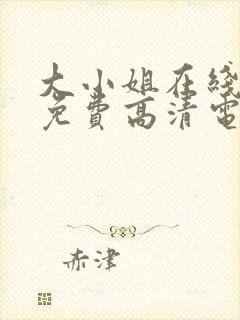 大小姐在线
免费高清电
赤津